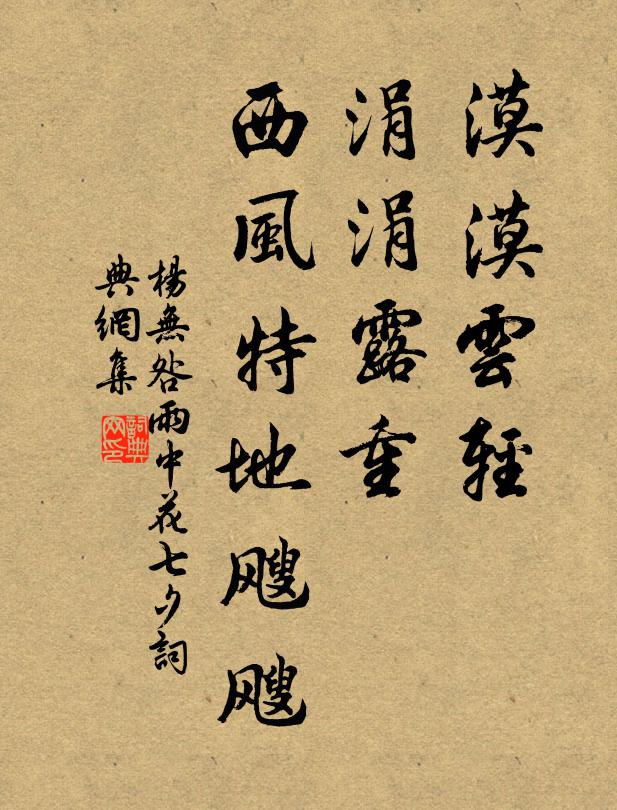 漠漠雲輕
涓涓露重
西風特地飕飕
楊無咎雨中花七夕詞
典網集
詞典網印